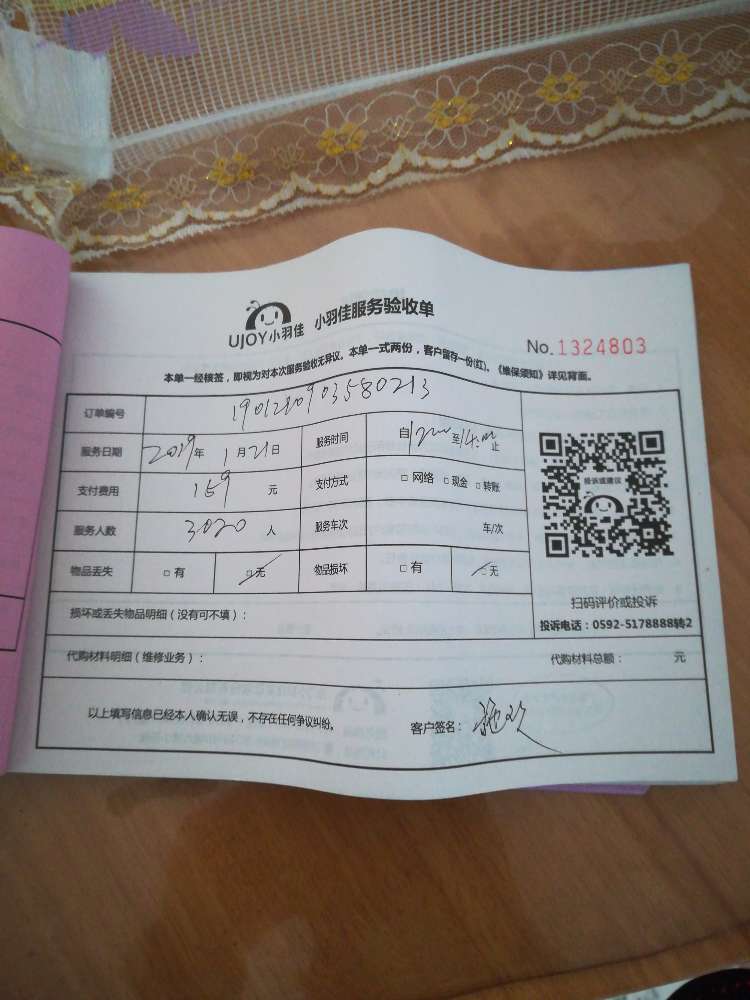 UJOY小羽佳 小羽佳服务验收单
No.1324803
本单一经核签，即视为对本次服务验收无异议。本单一式两份，客户留存一份(红)。《维保须知》详见背面。
订单编号 1901210903580213
服务日期 2019年1月21日 服务时间 自12:00至14:00止
支付费用 159元 支付方式 □网络 □现金 □转账
服务人数 3020人 服务车次 车/次
物品丢失 □有 □无 物品损坏 □有 □无
投诉或建议
扫码评价或投诉
投诉电话：0592-5178888转2
损坏或丢失物品明细（没有可不填）：
代购材料明细（维修业务）： 代购材料总额： 元
以上填写信息已经本人确认无误，不存在任何争议纠纷。 客户签名：